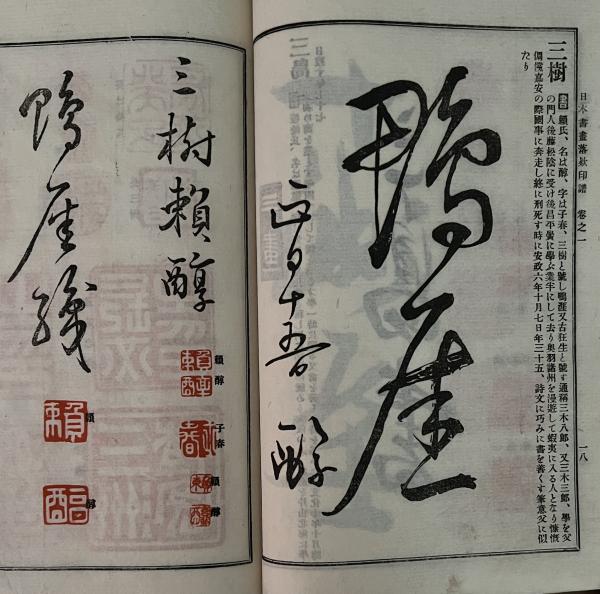 日本書畫落欵印譜 卷之一
一八
三樹
書 賴氏、名は醇、字は子春、三樹と號し鴨涯又古狂生と號す通稱三木八郎、又三木三郎、學を父
の門人後藤松陰に受け後昌平黌に學ぶ業半にして去り奥羽諸州を漫遊して蝦夷に入る人となり慷慨
倜儻嘉安の際國事に奔走し終に刑死す時に安政六年十月七日年三十五、詩文に巧みに書を善くす筆意父に似
たり
鴨厓
醇
三樹賴醇
賴醇
子春
賴醇
鴨厓
賴
醇